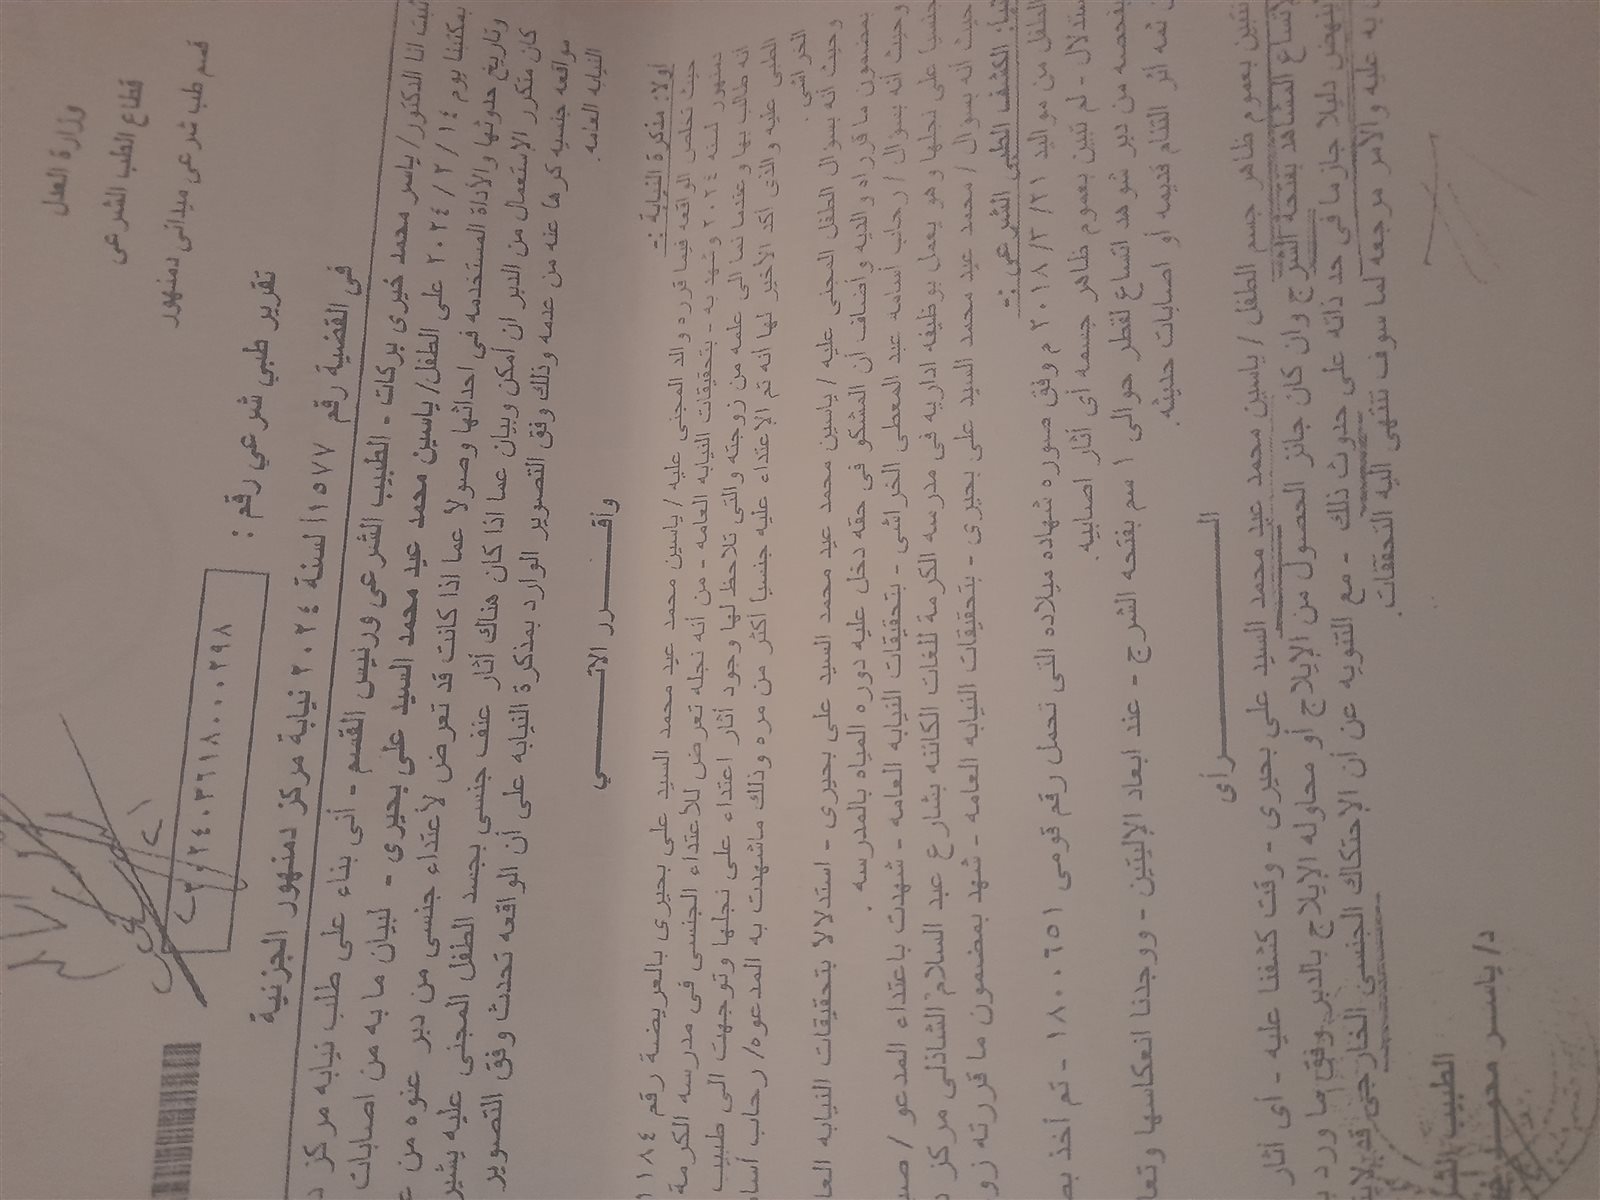 وزارة العدل
قطاع الطب الشرعى
قسم طب شرعى ميدانى دمنهور
تقرير طبي شرعي رقم :
٢٤٠٣٦١٨٠٠٠٢٩٨
فى القضية رقم ١١٥٧٧ لسنة ٢٠٢٤ نيابة مركز دمنهور الجزئية
ثبت انا الدكتور/ ياسر محمد خيرى بركات - الطبيب الشرعى ورئيس القسم - أنى بناء على طلب نيابه مركز
بمكتبنا يوم ١٤ / ٢ / ٢٠٢٤ على الطفل/ ياسين محمد عيد محمد السيد على بحيرى - لبيان ما به من اصابات
وتاريخ حدوثها والأداة المستخدمه فى احداثها وصولا عما اذا كانت قد تعرض لأعتداء جنسى من دبر عنوه من
كان متكرر الإستعمال من الدبر ان أمكن وبيان عما اذا كان هناك أثار عنف جنسى بجسد الطفل المجنى عليه يشير
مواقعه جنسيه كرها عنه من عدمه وذلك وفق التصوير الوارد بمذكرة النيابه على أن الواقعه تحدث وفق التصوير
النيابه العامه.
وأقـــــرر الاتـــــي
أولا: مذكرة النيابة :-
حيث تخلص الواقعه فيما قرره والد المجنى عليه / ياسين محمد عيد محمد السيد على بحيرى بالعريضة رقم ١١٨٤
دمنهور لسنه ٢٠٢٤ وشهد به - بتحقيقات النيابه العامه - من أنه نجله تعرض للأعتداء الجنسى فى مدرسه الكرمة
انه طالب بها وعندما نما الى علمه من زوجته والتى تلاحظ لها وجود أثار اعتداء على نجلها وتوجهت الى طبيب
الطبى عليه والذى أكد الأخير لها أنه تم الإعتداء عليه جنسيا أكثر من مره وذلك ماشهدت به المدعوه/ رحاب أسامه
الخراشى.
وحيث أنه بسوال الطفل المجنى عليه / ياسين محمد عيد محمد السيد على بحيرى - استدلالا بتحقيقات النيابه العا
بمضمون ما قرراه والديه وأضاف أن المشكو فى حقه دخل عليه دوره المياه بالمدرسه.
وحيث أنه بسوال / رحاب أسامه عبد المعطى الخراشى - بتحقيقات النيابه العامه - شهدت باعتداء المدعو /
جنسيا على نجلها وهو يعمل بوظيفه اداريه فى مدرسه الكرمة للغات الكائنه بشارع عبد السلام الشاذلى مركز
حيث أنه بسوال / محمد عيد محمد السيد على بحيرى - بتحقيقات النيابه العامه - شهد بمضمون ما قررته
الكشف الطبى الشرعى :-
الطفل من مواليد ٢١ / ٣ / ٢٠١٨ م وفق صوره شهاده ميلاده التى تحمل رقم قومى ١٨٠٠٦٥١ - تم أخذ
ستدلال - لم نتبين بعموم ظاهر جسمه أى أثار اصابيه.
بفحصه من دبر شوهد اتساع لقطر حوالى ١ سم بفتحه الشرج - عند ابعاد الإليتين - ووجدنا انعكاسها
ثمه أثر التئام قديمه أو اصابات حديثه.
الـــــــرأى
نتبين بعموم ظاهر جسم الطفل / ياسين محمد عيد محمد السيد على بحيرى - وقت كشفنا عليه - أى أثار
لأتساع المشاهد بفتحة الشرج وان كان جائز الحصول من الإيلاج أو محاوله الإيلاج بالدبر وفق ما ورد
ينهض دليلا جازما فى حد ذاته على حدوث ذلك - مع التنويه عن أن الإحتكاك الجنسى الخارجى قد لا
به عليه والأمر مرجعه لما سوف تنتهى اليه التحقيقات.
الطبيب
د/ ياسر محمد